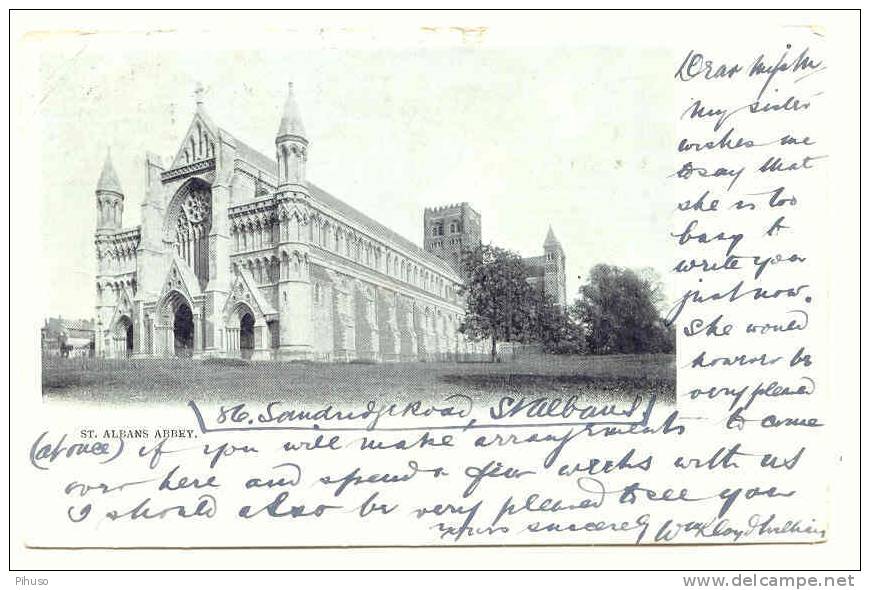 Dear Miss M.
My sister
wishes me
to say that
she is too
busy to
write you
just now.
She would
however be
very pleased
86. Sandridge Road, St Albans
ST. ALBANS ABBEY.
to come
(at once) if you will make arrangements
over here and spend a few weeks with us
I should also be very pleased to see you
yours sincerely Wm Lloyd Williams
Pihuso
www.delcampe.net